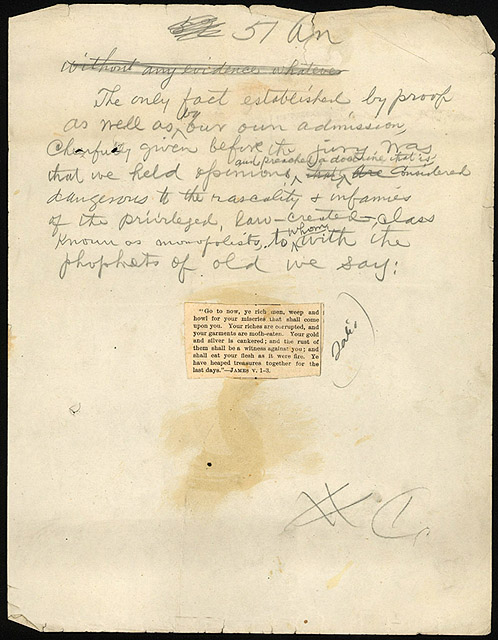 51 An
without any evidence whatever
The only fact established by proof
by
as well as our own admission,
cheerfully given before the jury, was
and preached a doctrine that is
that we held opinions, are considered
dangerous to the rascality & infamies
of the privileged, law-created class
whom
known as monopolists, to with the
phophets of old we say:
"Go to now, ye rich men, weep and
howl for your miseries that shall come
upon you. Your riches are corrupted, and
your garments are moth-eaten. Your gold
and silver is cankered; and the rust of
them shall be a witness against you; and
shall eat your flesh as it were fire. Ye
have heaped treasures together for the
last days."—JAMES v. 1-3.